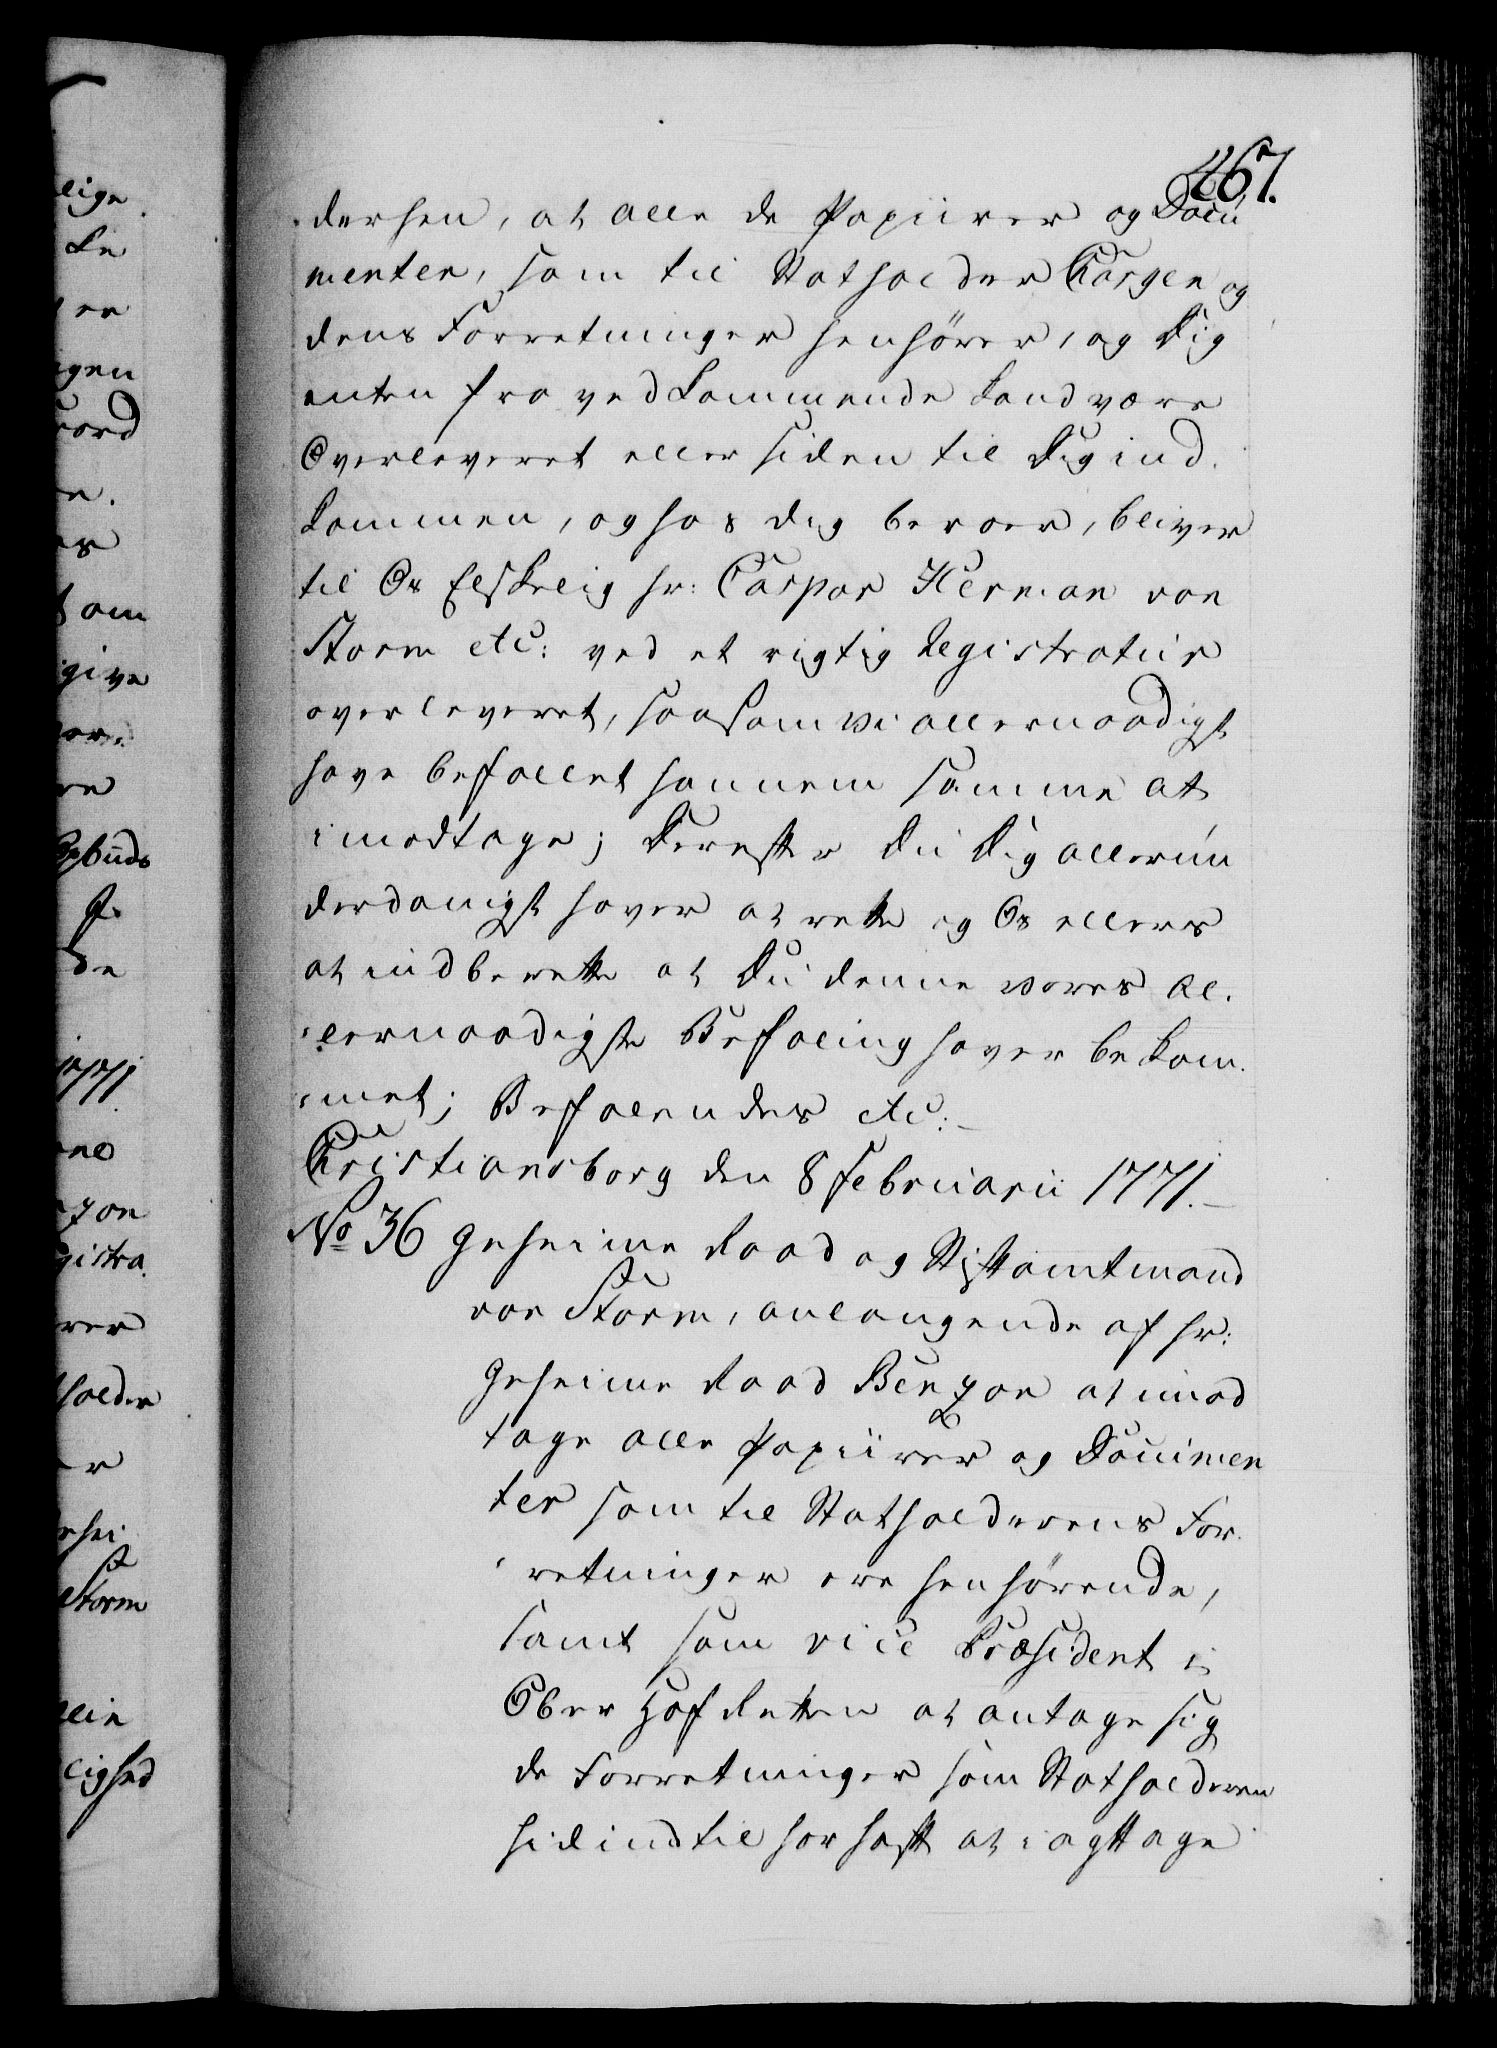 467.
dershen, at alle de Papiirer og Docu
menter, som til Statholder Chargen og
dens Forretninger henhörer, og Dig
enten fra vedkommende kand være
Overleveret eller siden til Dig ind.
kommen, og hos dig beroer, bliver
til Os Elskelig Hr: Caspar Herman von
Storm etc: ved et rigtig Registratur
overleveret, saasom vi allernaadigst
have befallet hannem samme at
imodtage; Derefter Du Dig allerun
derdanigst haver at rette og Os ellers
at indberette at Du denne vores al.
lernaadigste Befaling haver bekom.
met; Befalendes etc:
Christiansborg den 8 Februarii 1771.
No 36 Geheime Raad og Stiftamtmand
von Storm, anlangende af Hr:
Geheime Raad Benzon at imod
tage alle Papiirer og Documen
ter som til Statholderens For.
retninger ere henhörende,
samt som vice Præsident i
Ober Hof Retten at antage sig
de Forretninger som Statholderen
hid indtil har haft at iagttage
lige
ke
er
gen
om
give
buds
de
1771
zon
gistra.
rer
holder
er
Storm
lighed